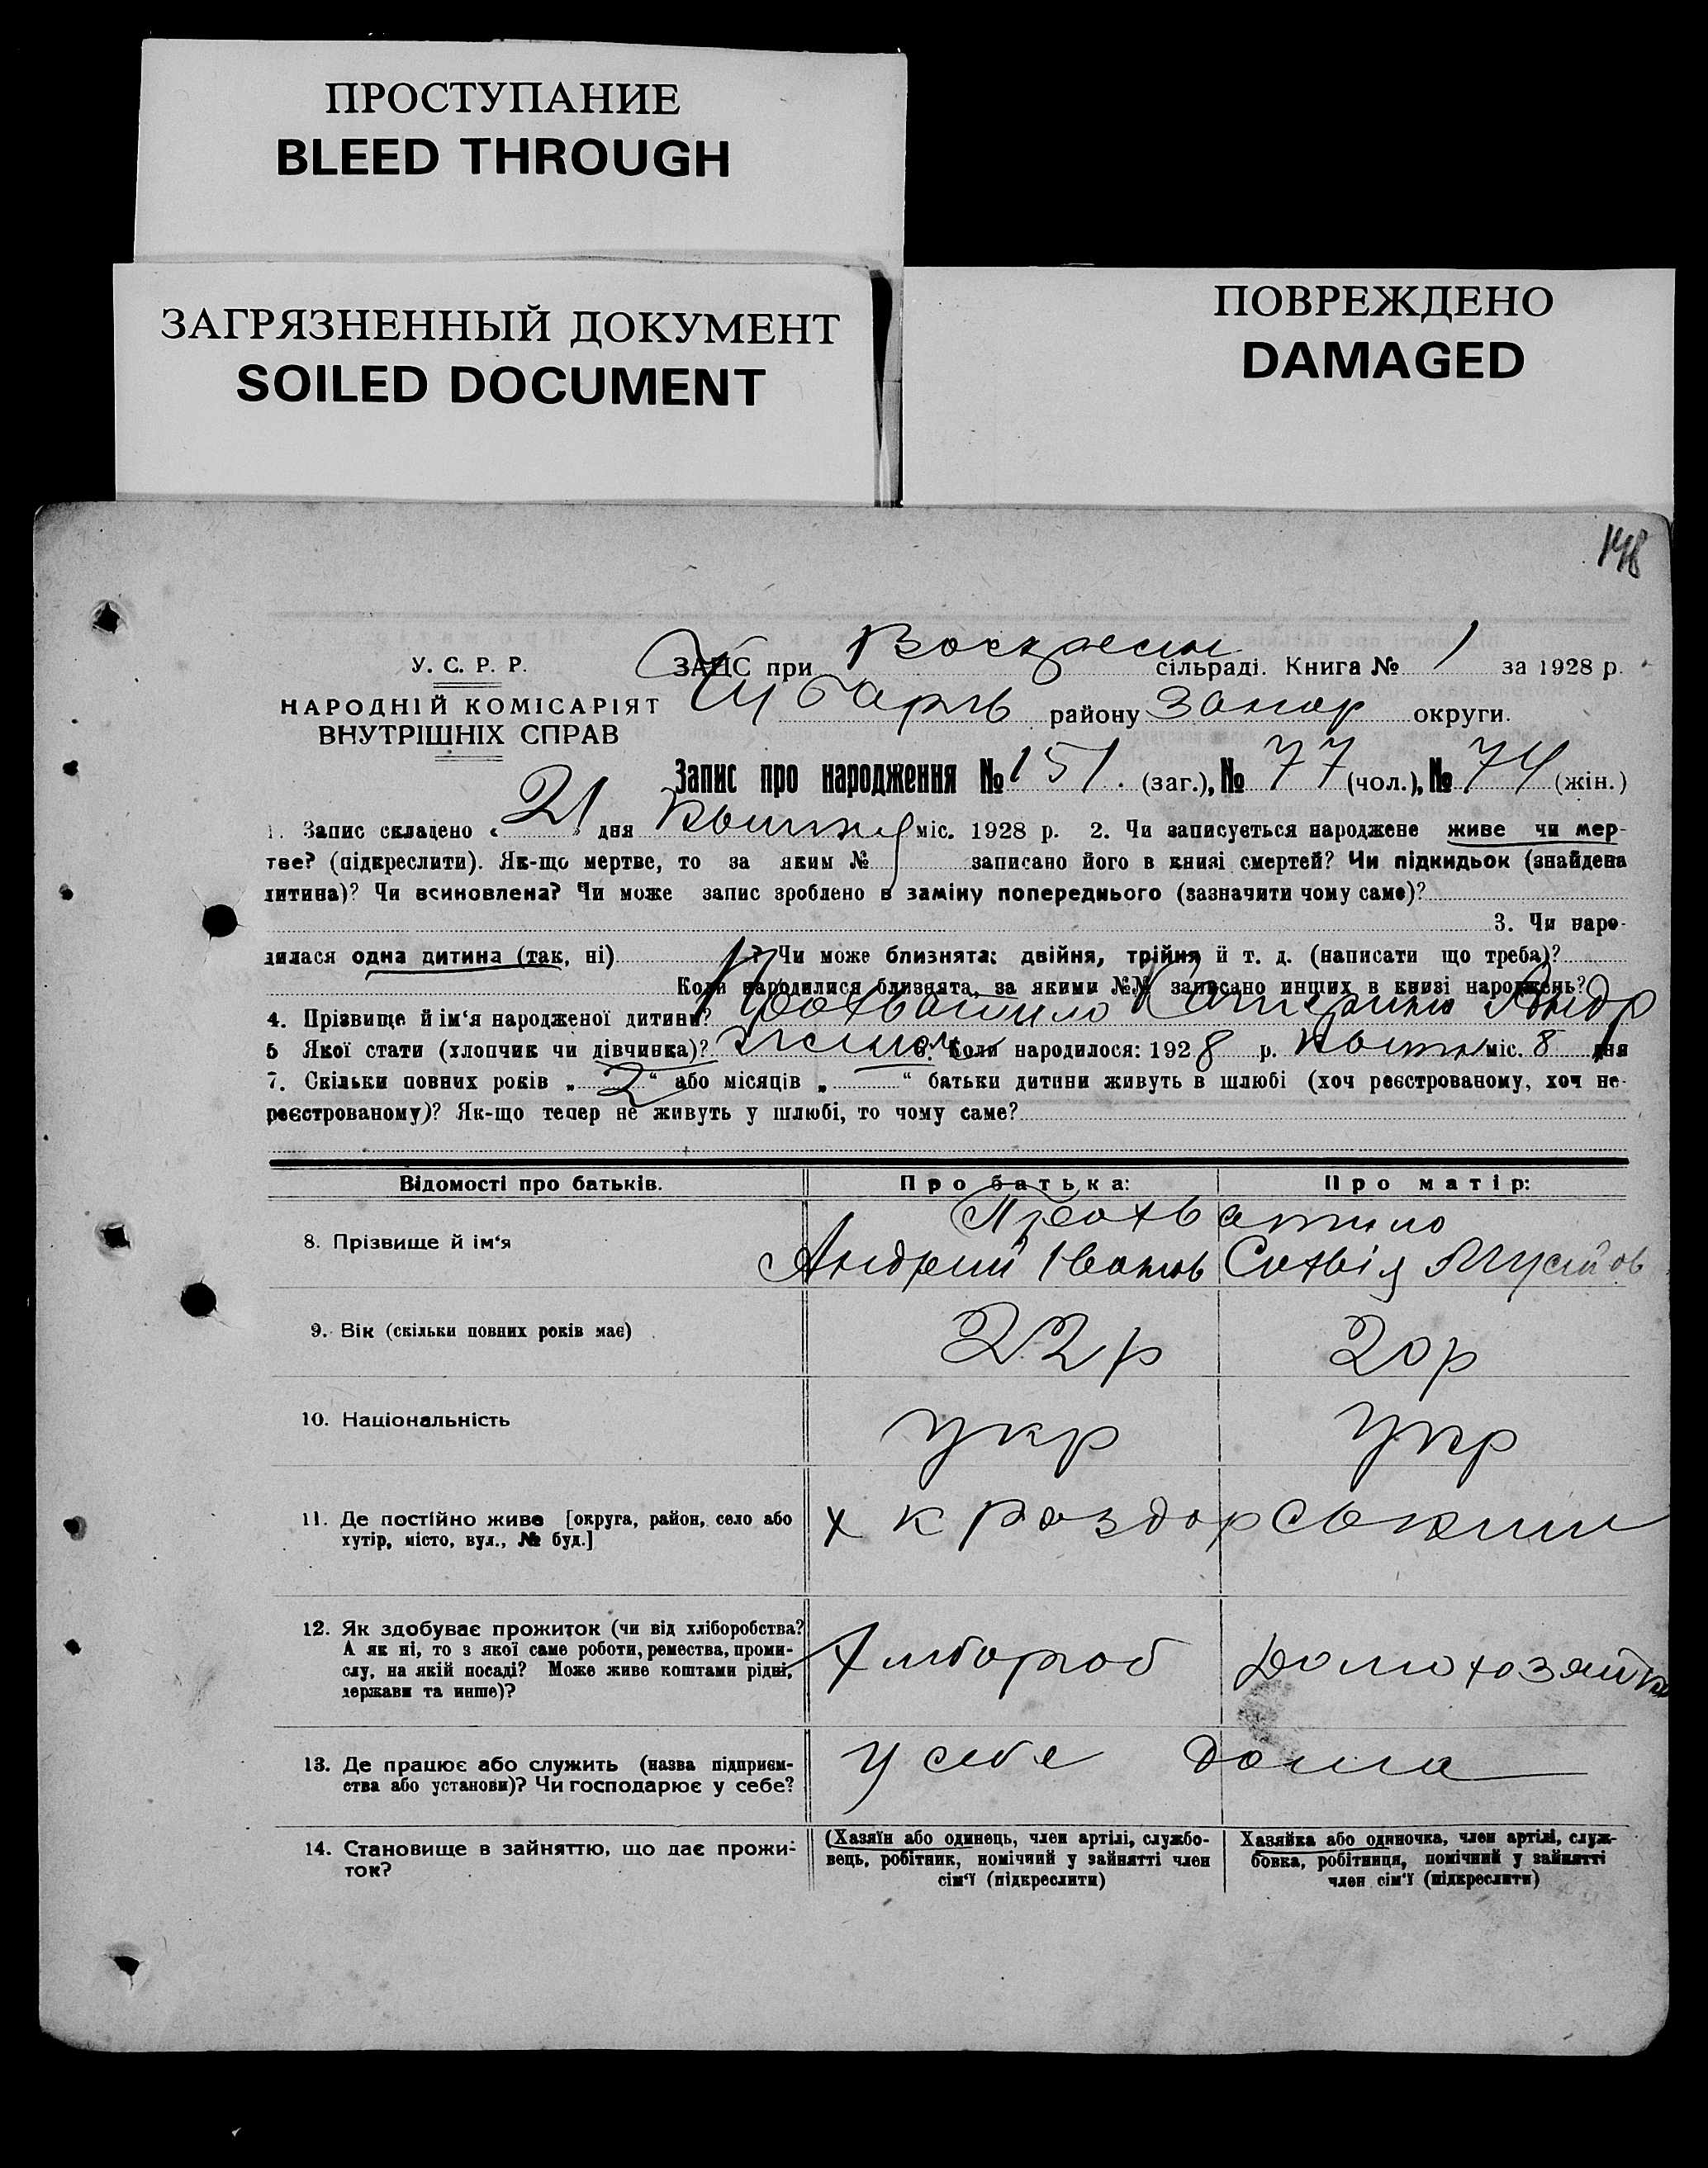 ПРОСТУПАНИЕ
BLEED THROUGH
ЗАГРЯЗНЕННЫЙ ДОКУМЕНТ
SOILED DOCUMENT
ПОВРЕЖДЕНО
DAMAGED
148
У. С. Р. Р.
НАРОДНІЙ КОМІСАРІЯТ
ВНУТРІШНІХ СПРАВ
ЗАГС при сільраді. Книга № 1 за 1928 р.
району Запор округи.
Запис про народження № 151. (заг.), № 77 (чол.), № 74 (жін.)
1. Запис складено « 21 » дня міс. 1928 р. 2. Чи записується народжене живе чи мер-
тве? (підкреслити). Як-що мертве, то за яким № записано його в книзі смертей? Чи підкидьок (знайдена
дитина)? Чи всиновлена? Чи може запис зроблено в заміну попереднього (зазначити чому саме)?
3. Чи наро-
дилася одна дитина (так, ні) ? Чи може близнята: двійня, трійня й т. д. (написати що треба)?
Коли народилися близнята, за якими №№ записано инших в книзі народжень?
4. Прізвище й ім‘я народженої дитини? Андр
5 Якої стати (хлопчик чи дівчинка)? 6. Коли народилося: 1928 р. міс. 8 дня
7. Скільки повних років „ 2 “ або місяців „ “ батьки дитини живуть в шлюбі (хоч реєстрованому, хоч не-
реєстрованому)? Як-що тепер не живуть у шлюбі, то чому саме?
Відомості про батьків. Про батька: Про матір:
8. Прізвище й ім‘я
Андрий Иванов
9. Вік (скільки повних років має) 22 р 20 р
10. Національність укр укр
11. Де постійно живе [округа, район, село або
хутір, місто, вул., № буд.]
х к
12. Як здобуває прожиток (чи від хліборобства?
А як ні, то з якої саме роботи, ремества, проми-
слу, на якій посаді? Може живе коштами рідні,
держави та инше)?
Хлибороб Домохозяйка
13. Де працює або служить (назва підприєм-
ства або установи)? Чи господарює у себе?
у себе дома
14. Становище в зайняттю, що дає прожи-
ток?
(Хазяїн або одинець, член артілі, службо-
вець, робітник, помічний у зайнятті член
сім‘ї (підкреслити)
Хазяйка або одиночка, член артілі, служ-
бовка, робітниця, помічний у зайнятті
член сім‘ї (підкреслити)